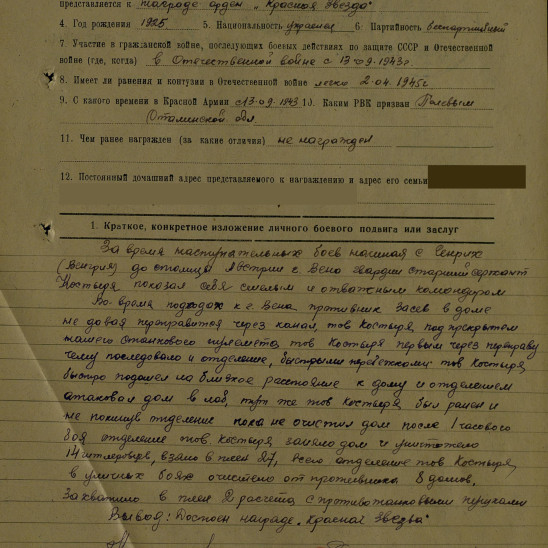 представляется к награде орден "Красная Звезда"
4. Год рождения 1925 5. Национальность украинец 6. Партийность беспартийный
7. Участие в гражданской войне, последующих боевых действиях по защите СССР и Отечественной
войне (где, когда) в Отечественной войне с 13-09-1943г.
8. Имеет ли ранения и контузии в Отечественной войне легко 2.04.1945г
9. С какого времени в Красной Армии с 13.09.1943 10. Каким РВК призван Полевым
Сталинской обл.
11. Чем ранее награжден (за какие отличия) не награжден
12. Постоянный домашний адрес представляемого к награждению и адрес его семьи
1. Краткое, конкретное изложение личного боевого подвига или заслуг
За время наступательных боев начиная с
(Венгрия) до столицы Австрии г. Вена гвардии старший сержант
Костыря показал себя смелым и отважным командиром
Во время подхода к г. Вена противник засев в доме
не давая переправится через канал, тов Костыря под прекрытем
нашего станкового пулемета тов Костыря первым через переправу
чему последовало и отделение, быстрыми перебежками тов Костыря,
быстро подошел на близкое расстояние к дому и отделением
атаковал дом в лоб, тут же тов Костыря был ранен и
не покинув отделение пока не очистил дом после 1 часового
боя отделение тов Костыря заняло дом и уничтожено
14 гитлеровцев, взято в плен 27, всего отделение тов Костыря,
в уличных боях очистело от противника 8 домов.
Захватило в плен 2 расчета с противотанковыми пушками
Вывод: Достоен награде "Красная Звезда"